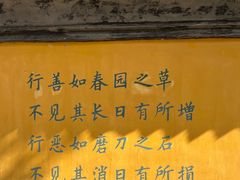 行善如春园之草
不见其长日有所增
行恶如磨刀之石
不见其消日有所损